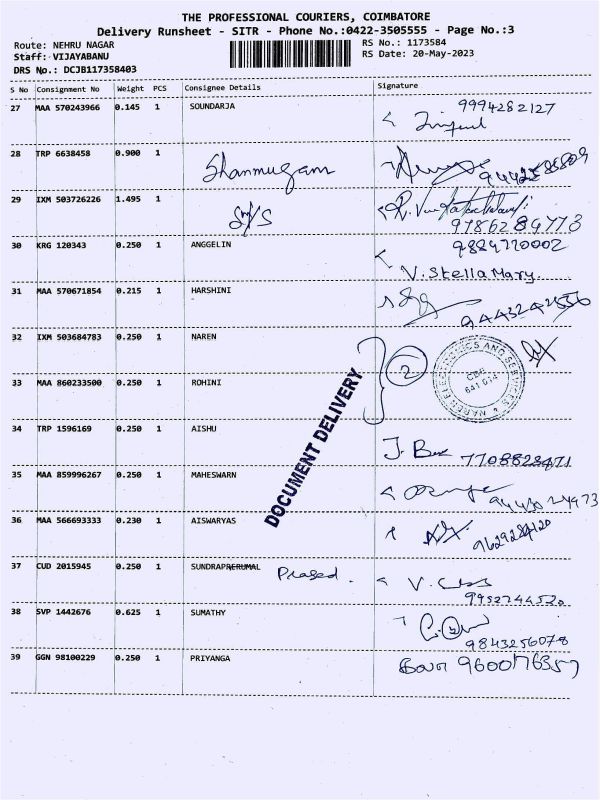 THE PROFESSIONAL COURIERS, COIMBATORE
Delivery Runsheet - SITR - Phone No.:0422-3505555 - Page No.:3
Route: NEHRU NAGAR RS No.: 1173584
Staff: VIJAYABANU RS Date: 20-May-2023
DRS No.: DCJB117358403
S No Consignment No Weight PCS Consignee Details Signature
27 MAA 570243966 0.145 1 SOUNDARJA 9994282127
28 TRP 6638458 0.900 1 Shanmugam
29 IXM 503726226 1.495 1 9786289773
30 KRG 120343 0.250 1 ANGGELIN 9824720002
V. Stella Mary.
31 MAA 570671854 0.215 1 HARSHINI
32 IXM 503684783 0.250 1 NAREN
2
NAREN ELECTRONICS AND SERVICES
CBE
641 014
33 MAA 860233500 0.250 1 ROHINI
DOCUMENT DELIVERY
34 TRP 1596169 0.250 1 AISHU 7708828471
35 MAA 859996267 0.250 1 MAHESWARN
36 MAA 566693333 0.230 1 AISWARYAS
37 CUD 2015945 0.250 1 SUNDRAPRERUMAL Prasad. 9952744520
38 SVP 1442676 0.625 1 SUMATHY 9843256078
39 GGN 98100229 0.250 1 PRIYANGA